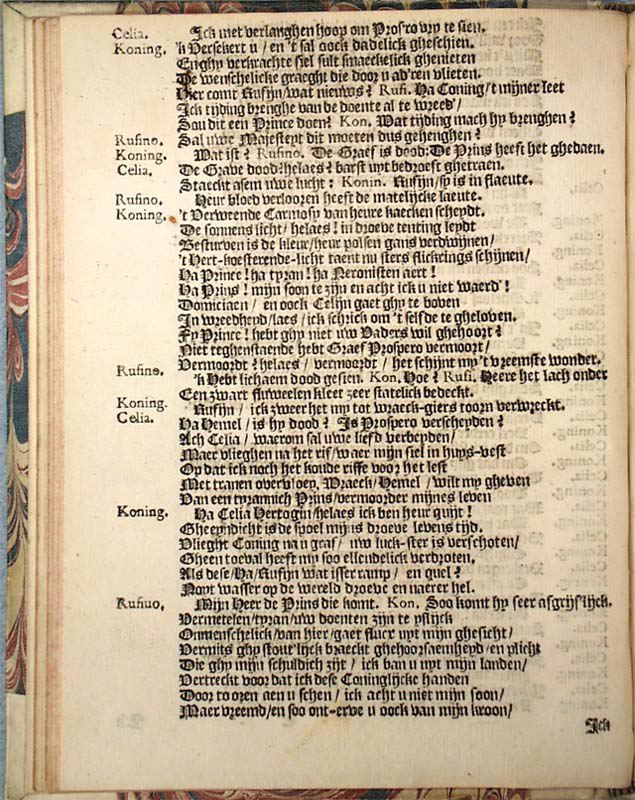 Celia. Ick met verlanghen hoop om Prosp'ro vry te sien.
Koning. 'k Versekert u / en 't sal oock dadelick gheschien.
En ghy verkrachte siel sult smaeckelick ghenieten
De wenschelicke graeght die door u ad'ren vlieten.
Hier comt Rufijn / wat nieuws? Rufi. Ha Coning / 't mijner leet
Ick tijding brenghe van de doente al te wreed /
Sou dit een Prince doen? Kon. Wat tijding mach hy brenghen?
Rufino. Sal uwe Majesteyt dit moeten dus gehenghen?
Koning. Wat ist? Rufino. De Graef is dood: De Prins heeft het ghedaen.
Celia. De Grave dood: helaes? barst uyt bedroeft ghetraen.
Staeckt asem uwe lucht: Konin. Rufijn / sy is in flaeute.
Rufino. Heur bloed verlooren heeft de matelijcke laeute.
Koning. 't Verweende Carmosy van heure kaecken scheydt.
De sonnens licht / helaes! in droeve tenting leydt
Besturven is de kleur / heur polsen gans verdwijnen /
't Hert-koesterende-licht taent nu sters flickrings schijnen /
Ha Prince! ha tyran! ha Neronisten aert!
Ha Prins! mijn soon te zijn en acht ick u niet waerd'!
Domiciaen / en oock Celijn gaet ghy te boven
In wreedheyd / laes / ick schrick om 't selfde te gheloven.
Fy Prince! hebt ghy niet uw Vaders wil ghehoort?
Niet teghenstaende hebt Graef Prospero vermoort /
Vermoordt? helaes / vermoordt / het schijnt my 't vreemste wonder.
Rufino. 'k Hebt lichaem dood gesien. Kon. Hoe? Rufi. Heere het lach onder
Een zwart fluweelen kleet zeer statelick bedeckt.
Koning. Rufijn / ick zweer het my tot wraeck-giers toorn verwreckt.
Celia. Ha Hemel / is hy dood? Is Prospero verscheyden?
Ach Celia / waerom sal uwe liefd verbeyden /
Maer vlieghen na het rif / waer mijn siel in huys-vest
Op dat ick noch het koude riffe voor het lest
Met tranen overvloey. Wraeck / Hemel / wilt my gheven
Van een tyrannich Prins / vermoorder mijnes leven
Koning. Ha Celia Hertogin / helaes ick ben heur quijt!
Gheeyndicht is de spoel mijns droeve levens tijd.
Vlieght Coning na u graf / uw luck-ster is verschoten /
Gheen toeval heeft my soo ellendelick verdroten.
Als dese / Ha / Rufijn wat isser ramp / en quel?
Noyt wasser op de wereld droeve en naerer hel.
Rufiuo. Mijn Heer de Prins die komt. Kon. Soo komt hy seer afgrijs'lijck.
Vermetelen / tyran / uw doenten zijn te yslijck
Onmenschelick / van hier / gaet fluex uyt mijn ghesicht /
Vermits ghy stout'lijck braeckt ghehoorsaemheyd / en plicht
Die ghy mijn schuldich zijt / ick ban u uyt mijn landen /
Vertreckt voor dat ick dese Coninglijcke handen
Door tooren aen u schen / ick acht u niet mijn soon /
Maer vreemd / en soo ont-erve u oock van mijn kroon /
Ick